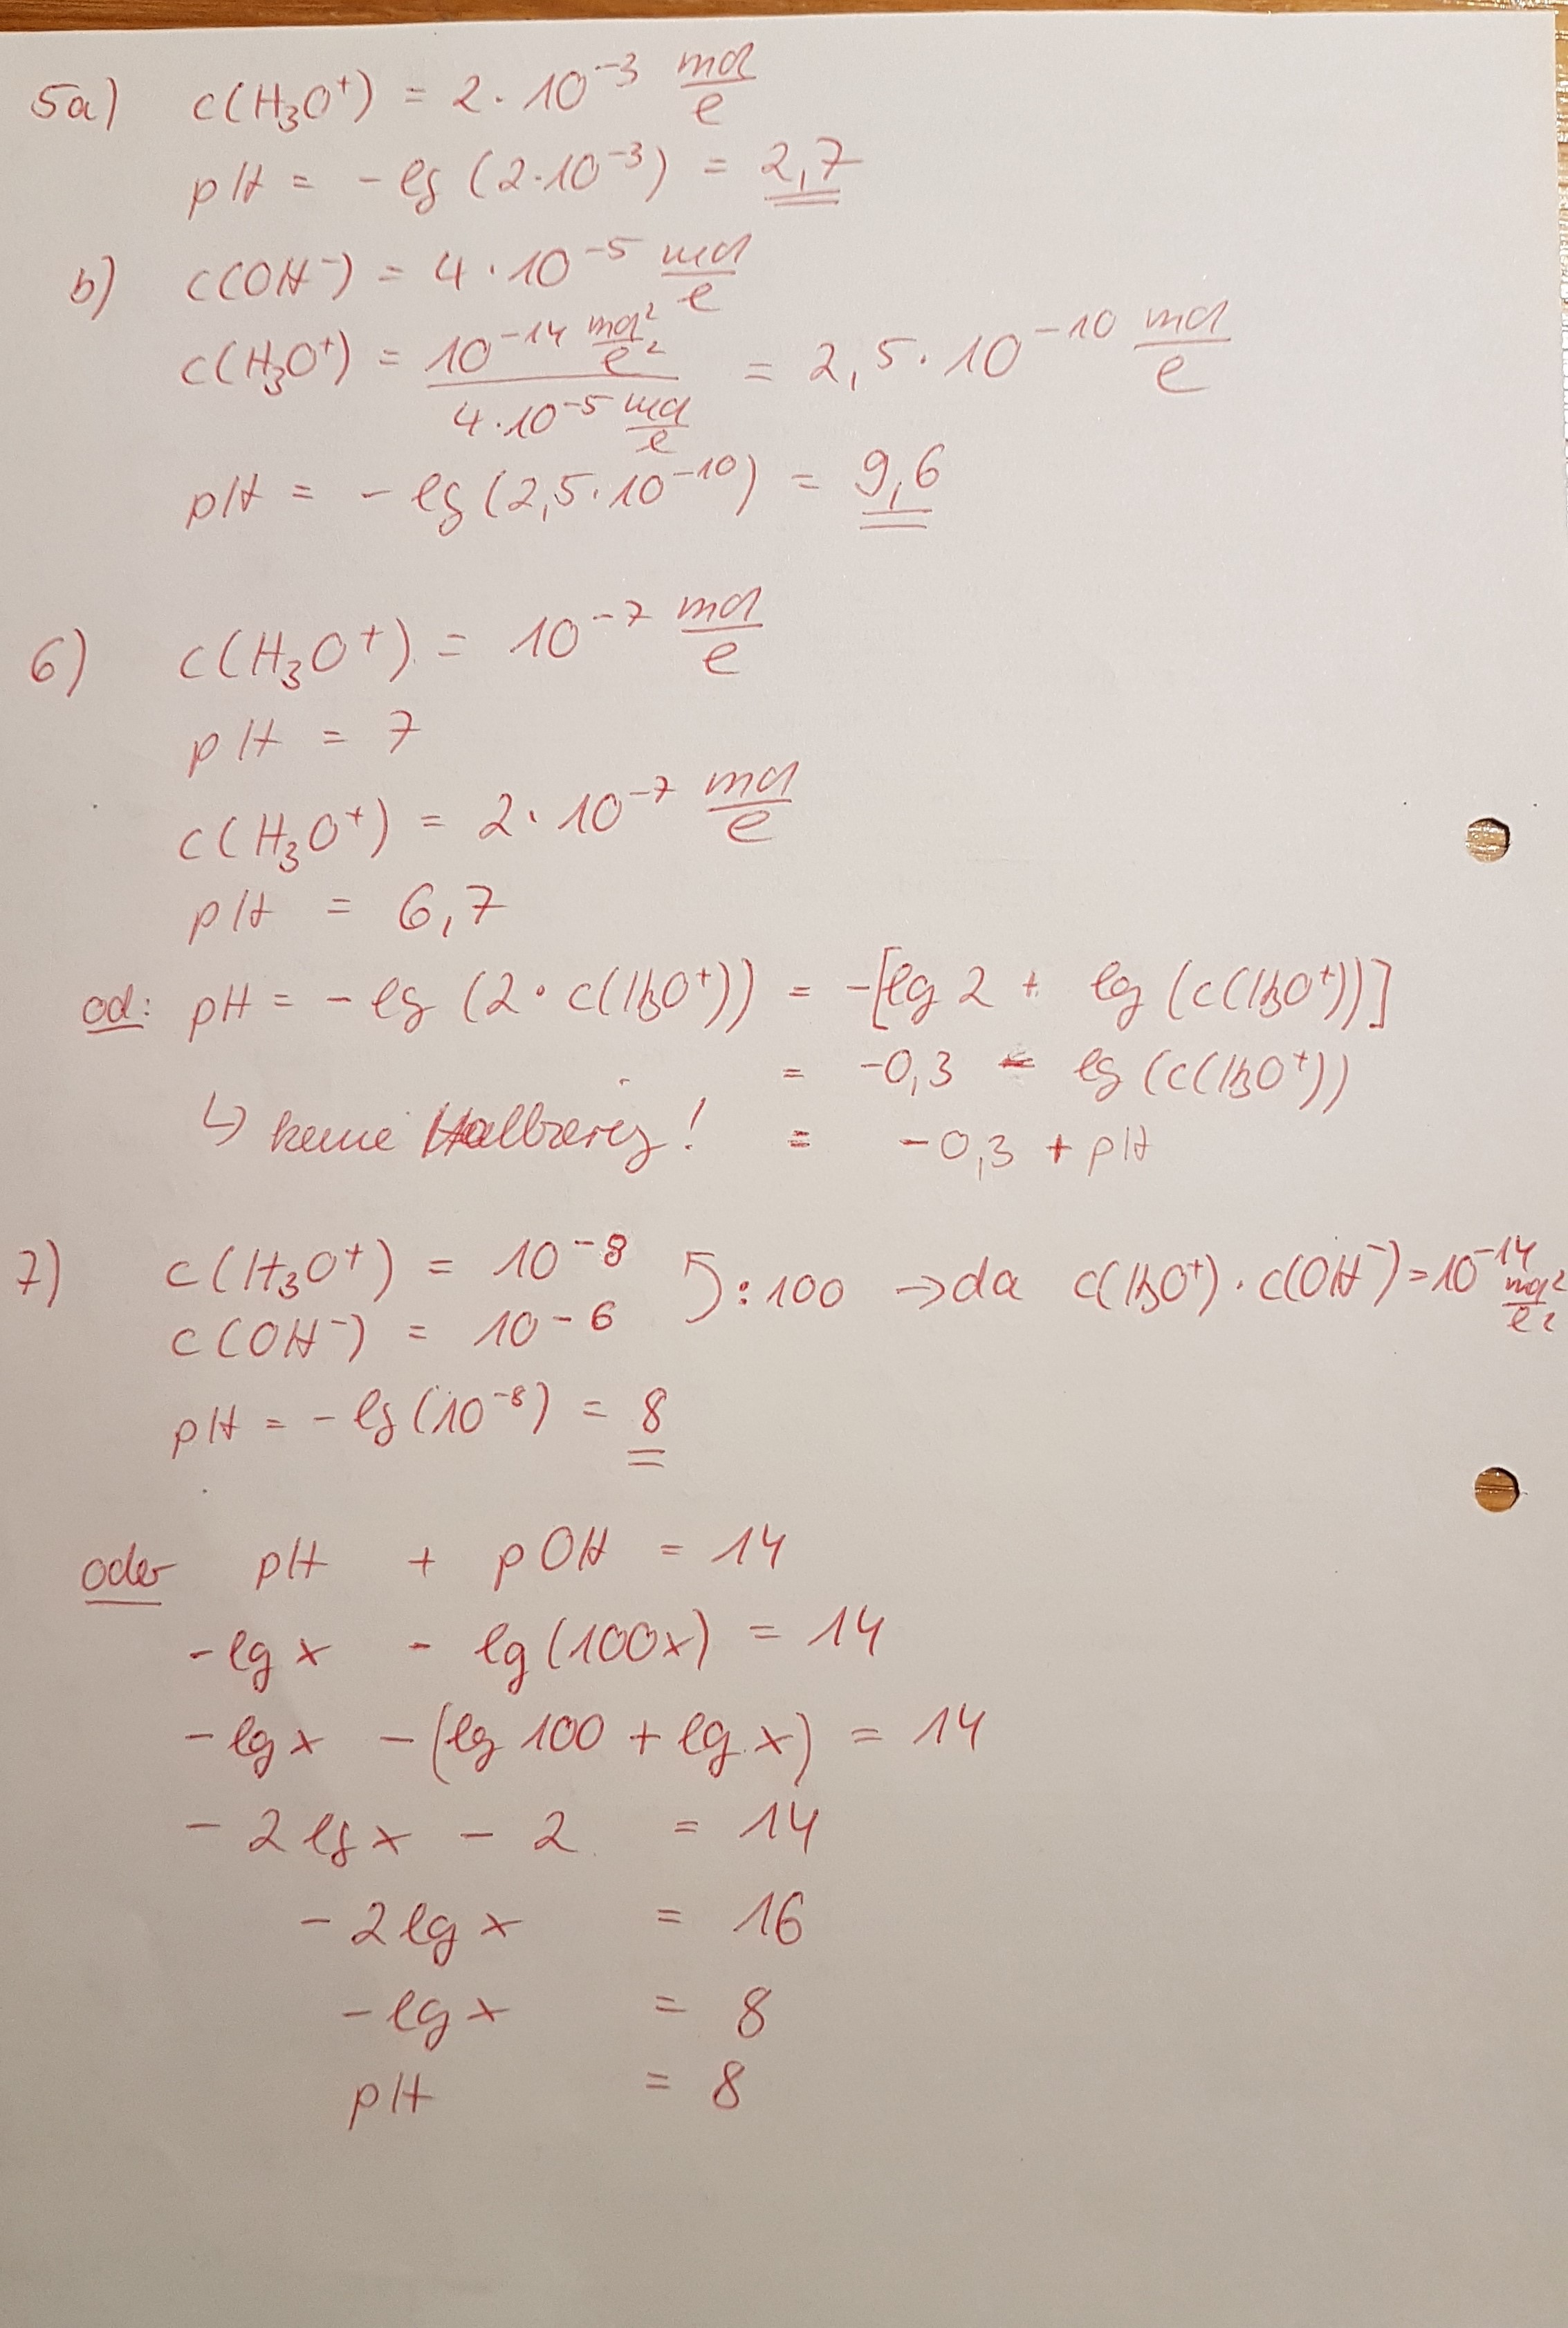 5a) c(H₃O⁺) = 2·10⁻³ mol/l
pH = -lg (2·10⁻³) = 2,7
b) c(OH⁻) = 4·10⁻⁵ mol/l
c(H₃O⁺) = 10⁻¹⁴ mol²/l² / 4·10⁻⁵ mol/l = 2,5·10⁻¹⁰ mol/l
pH = -lg (2,5·10⁻¹⁰) = 9,6
6) c(H₃O⁺) = 10⁻⁷ mol/l
pH = 7
c(H₃O⁺) = 2·10⁻⁷ mol/l
pH = 6,7
od: pH = -lg (2·c(H₃O⁺)) = -[lg 2 + lg (c(H₃O⁺))]
= -0,3 - lg (c(H₃O⁺))
↳ keine Halbierg! = -0,3 + pH
7) c(H₃O⁺) = 10⁻⁸ ):100 → da c(H₃O⁺)·c(OH⁻) = 10⁻¹⁴ mol²/l²
c(OH⁻) = 10⁻⁶
pH = -lg (10⁻⁸) = 8
oder pH + pOH = 14
-lg x - lg (100x) = 14
-lg x - (lg 100 + lg x) = 14
-2 lg x - 2 = 14
-2 lg x = 16
-lg x = 8
pH = 8